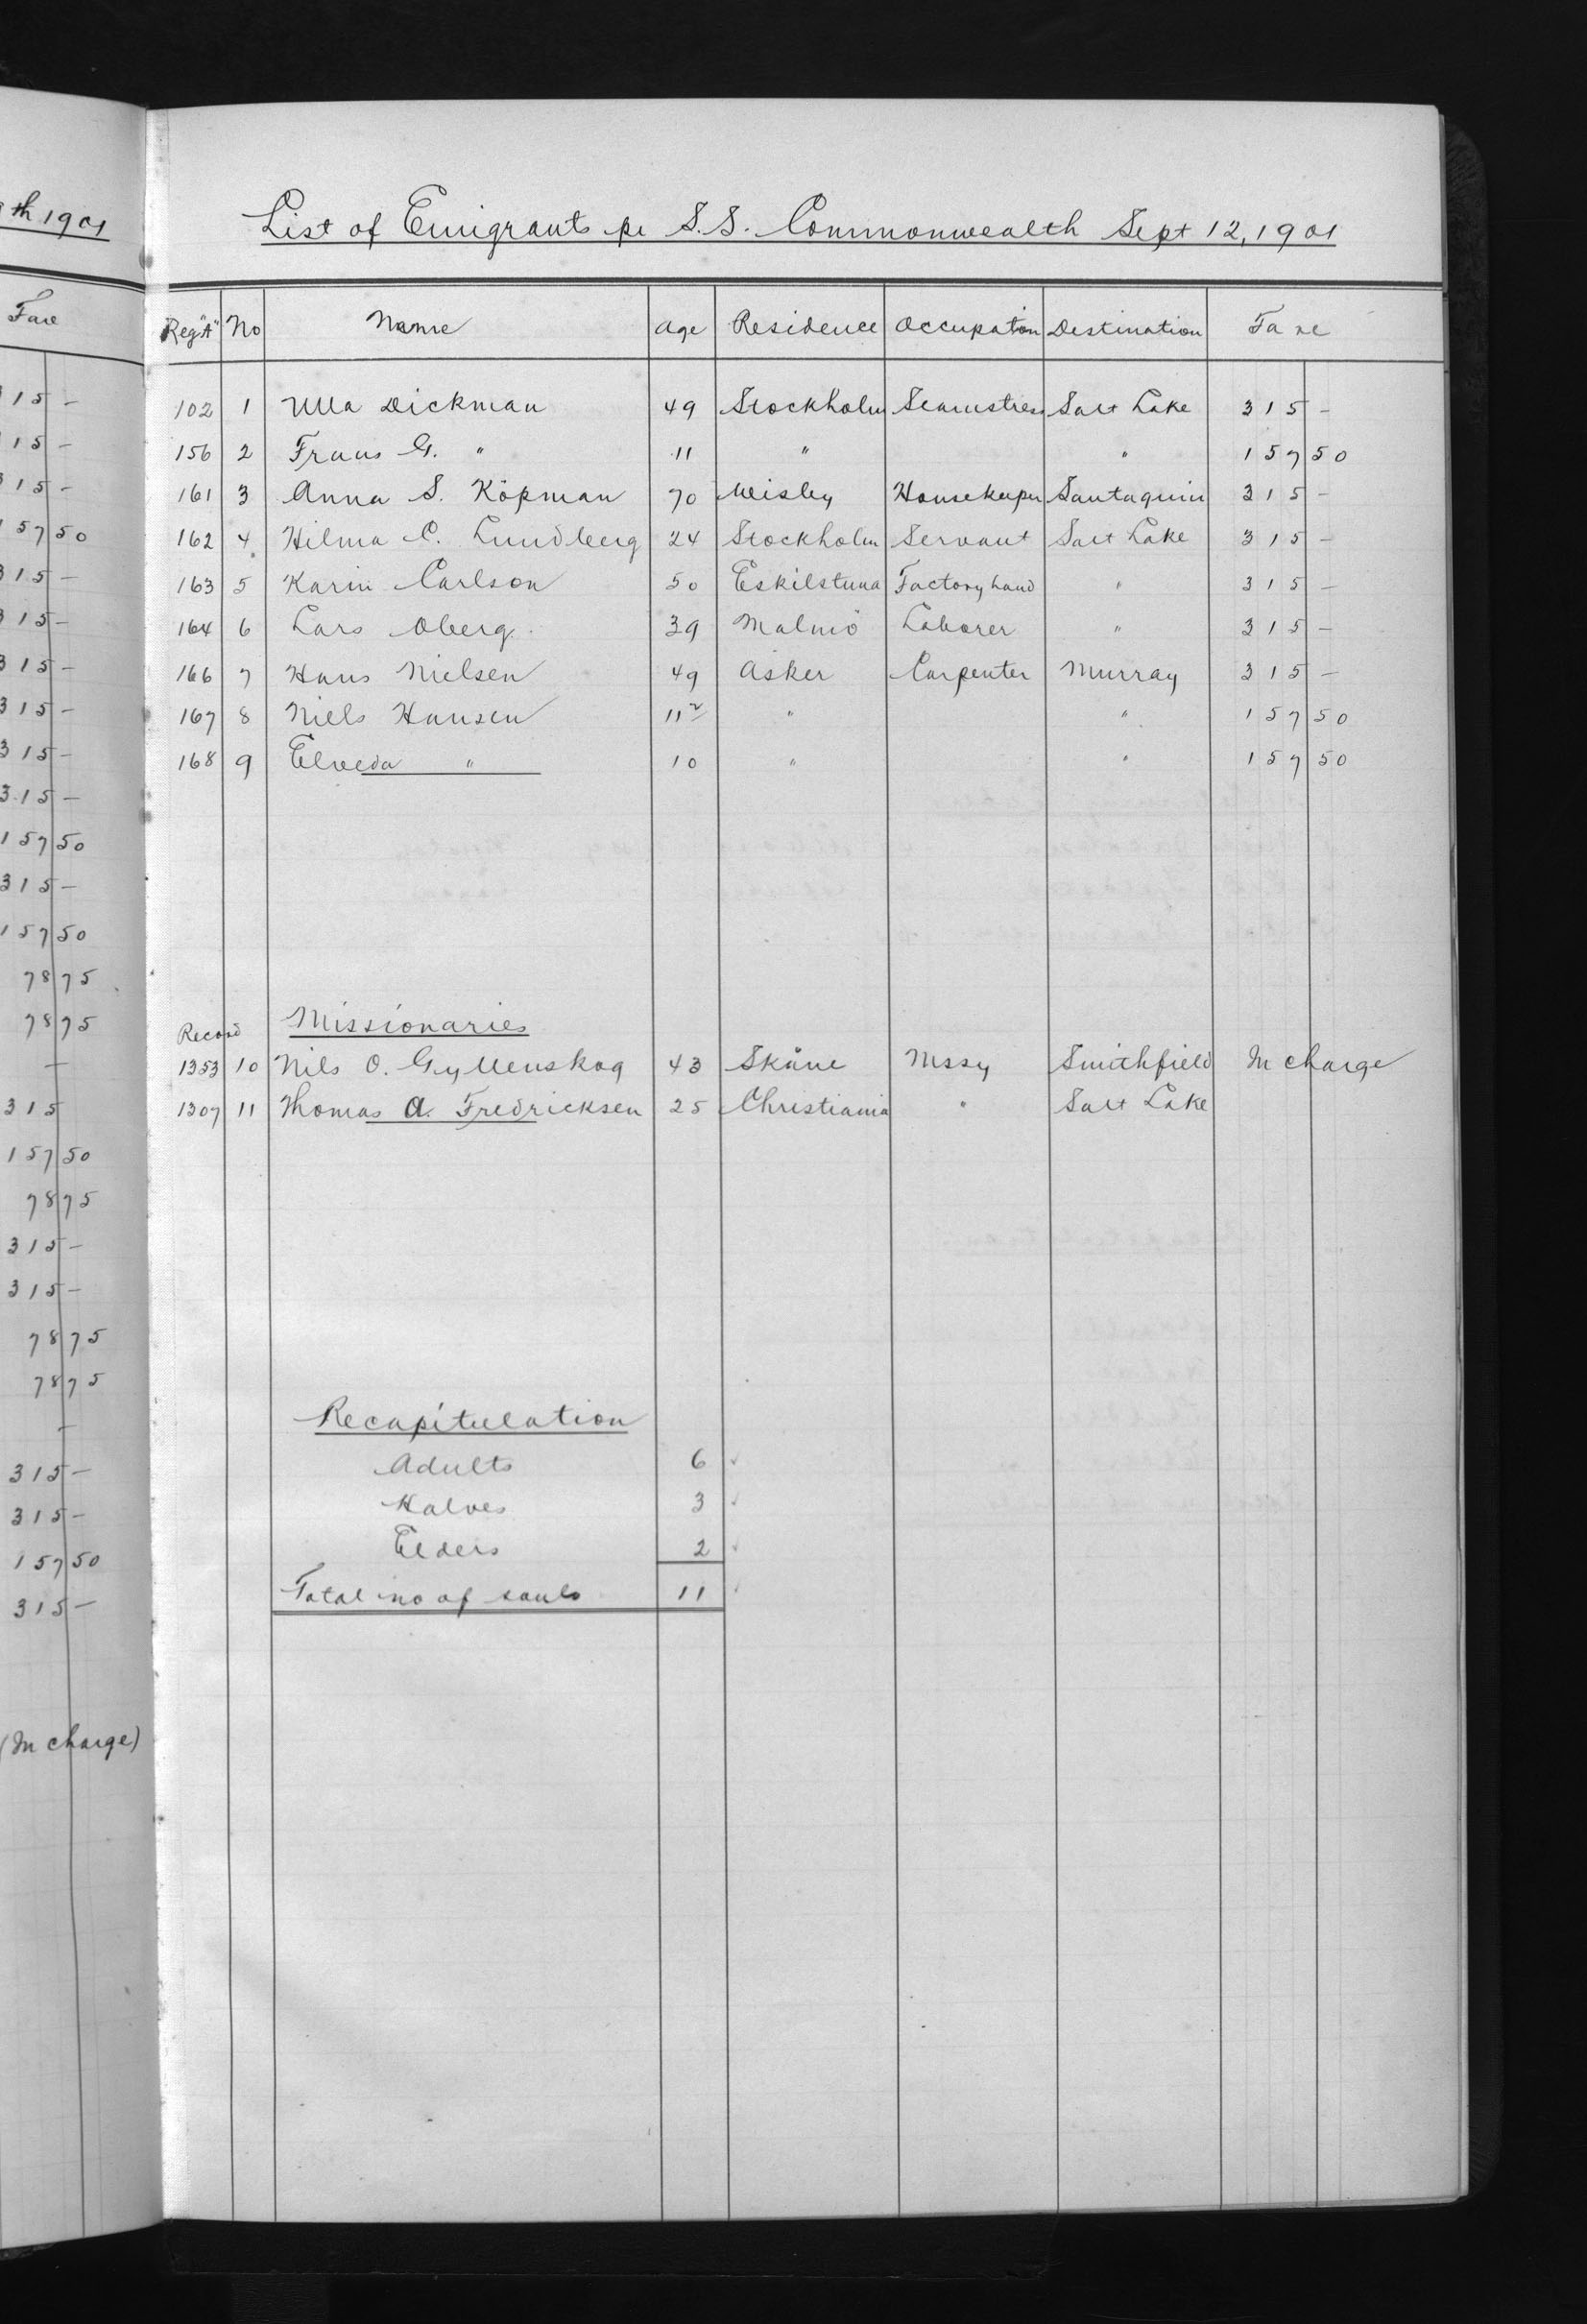 th 1901
Fare
315 -
15 -
315 -
157 50
315 -
315 -
315 -
315 -
315 -
315 -
157 50
315 -
157 50
78 75
78 75
-
315
157 50
78 75
315 -
315 -
78 75
78 75
-
315 -
315 -
157 50
315 -
(In charge)
List of Emigrants pr S.S. Commonwealth Sept 12, 1901
Reg "A" No Name Age Residence Occupation Destination Fare
102 1 Ulla Dickman 49 Stockholm Seamstress Salt Lake 315 -
156 2 Frans G. " 11 " " 157 50
161 3 Anna S. Köpman 70 Weisby Housekeeper Santaquin 315 -
162 4 Hilma C. Lundberg 24 Stockholm Servant Salt Lake 315 -
163 5 Karin Carlson 50 Eskilstuna Factory hand " 315 -
164 6 Lars Oberg 39 Malmö Laborer " 315 -
166 7 Hans Nielsen 49 Asker Carpenter Murray 315 -
167 8 Niels Hansen 11 " " 157 50
168 9 Elveda " 10 " " 157 50
Record Missionaries
1353 10 Nils O. Gyllenskog 43 Skåne Mssy Smithfield In charge
1307 11 Thomas A. Fredricksen 25 Christiania " Salt Lake
Recapitulation
Adults 6
Halves 3
Elders 2
Total no of souls 11